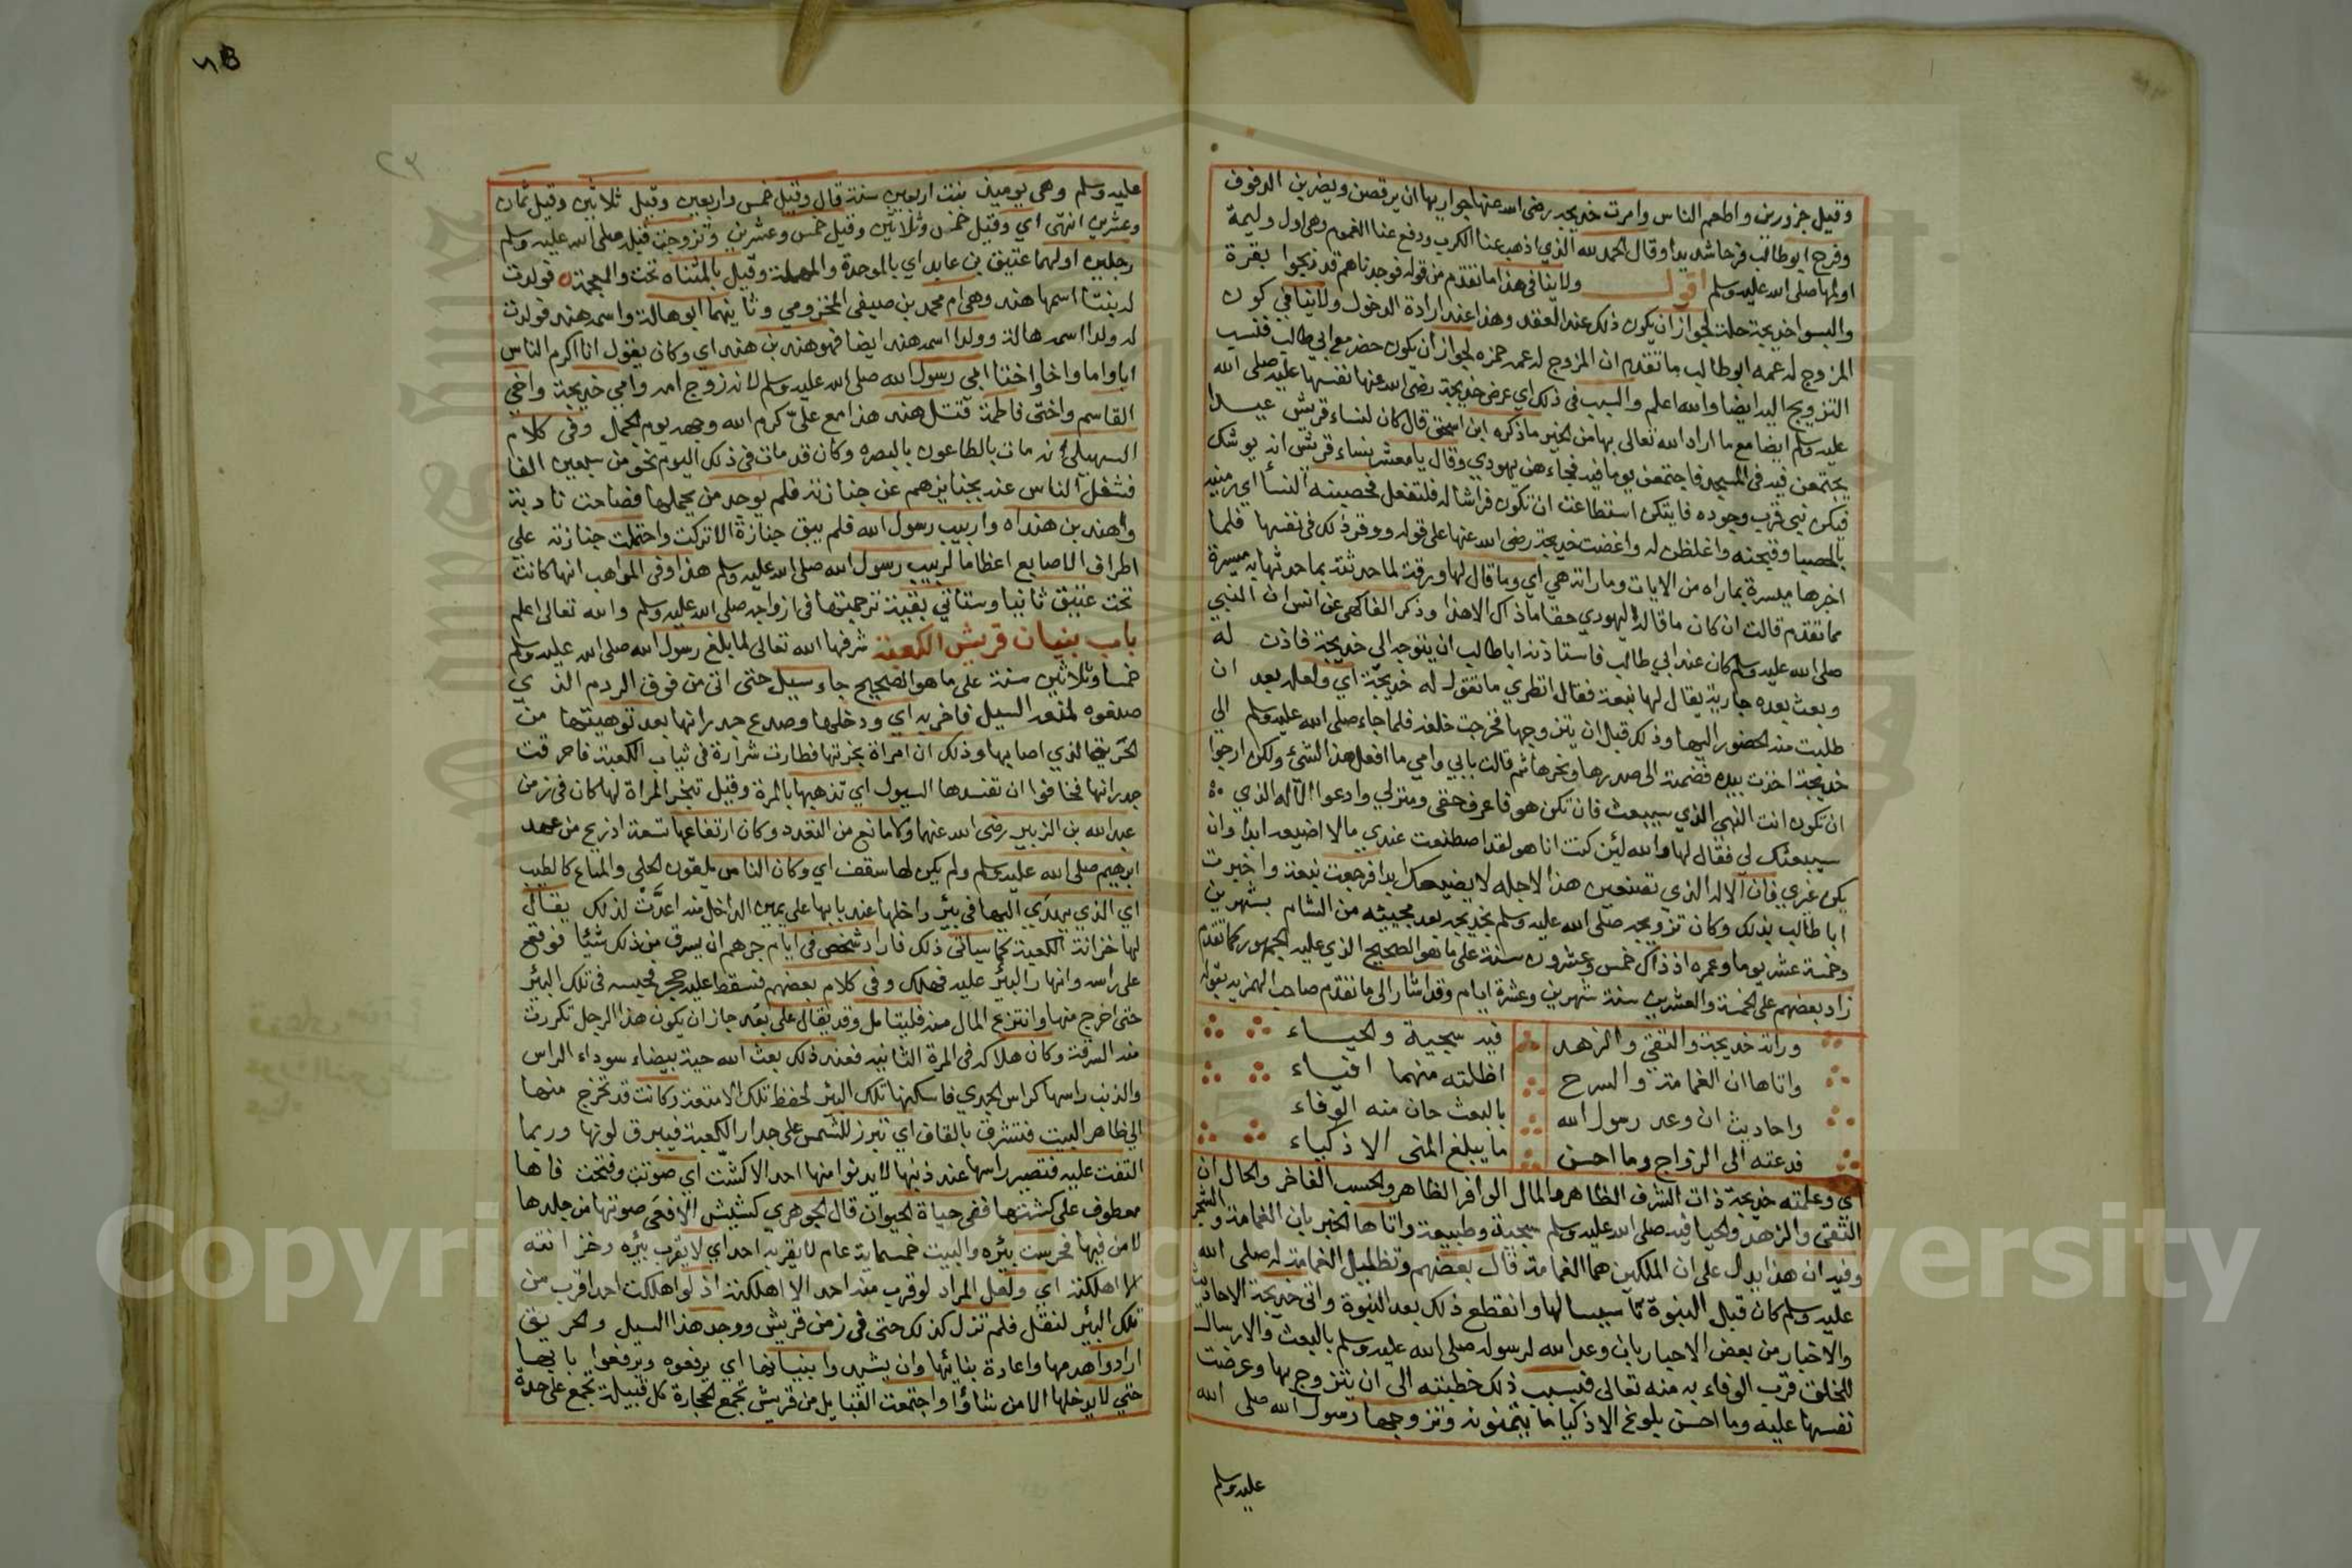 وقيل جزورين واطعم الناس وامرت خديجه رضى الله عنها جواريها ان يرقصن ويضربن الدفوف
وفرح ابو طالب فرحا شديدا وقال الحمد لله الذي اذهب عنا الكرب ودفع عنا الغموم وهى اول وليمة
اولمها صلى الله عليه وسلم اقول ولا ينافى هذا ما تقدم من قوله فوجدناهم قد ذبحوا بقرة
والبسوا خديجة حلة لجواز ان يكون ذلك عند العقد وهذا عند ارادة الدخول ولا ينافى كون
المزوج له عمه ابو طالب ما تقدم ان المزوج له عمه حمزه لجواز ان يكون حضر مع ابي طالب فنسب
التزويج اليه ايضا والله اعلم والسبب فى ذلك اي عرض خديجة رضى الله عنها نفسها عليه صلى الله
عليه وسلم ايضا مع ما اراد الله تعالى بها من الخير ما ذكره ابن اسحق قال كان لنساء قريش عيدا
يجتمعن فيه فى المسجد فاجتمعن يوما فيه فجاءهن يهودي وقال يا معشر نساء قريش انه يوشك
فيكن نبي قرب وجوده فايتكن استطاعت ان تكون فراشا له فلتفعل فحصبنه النسأ اي رمينه
بالحصبا وقبحنه واغلظن له واغضت خديجة رضى الله عنها على قوله ووقر ذلك فى نفسها فلما
اخبرها ميسرة بما راه من الايات وما راته هي اي وما قال لها ورقة لما حدثته بما حدثها به ميسرة
مما تقدم قالت ان كان ما قاله اليهودي حقا ما ذاك الا هذا وذكر الفاكهى عن انس ان النبي
صلى الله عليه وسلم كان عند ابي طالب فاستاذن ابا طالب ان يتوجه الى خديجة فاذن له
وبعث بعده جارية يقال لها نبعة فقال انظري ما تقول له خديجة اي ولعله بعد ان
طلبت منه الحضور اليها وذلك قبل ان يتزوجها فخرجت خلفه فلما جاء صلى الله عليه وسلم الى
خديجة اخذت بيده فضمته الى صدرها ونحرها ثم قالت بابي وامي ما افعل هذا الشئ ولكن ارجوا
ان تكون انت النبي الذي سيبعث فان تكن هو فاعرف حقى ومنزلي وادعوا الاله الذي
سيبعثك لي فقال لها والله لئن كنت انا هو لقد اصطنعت عندي ما لا اضيعه ابدا وان
يكن غيري فان الاله الذي تصنعين هذا لاجله لا يضيعك ابدا فرجعت نبعة واخبرت
ابا طالب بذلك وكان تزويجه صلى الله عليه وسلم بخديجه بعد مجيئه من الشام بشهرين
وخمسة عشر يوما وعمره اذ ذاك خمس وعشرون سنة على ما هو الصحيح الذي عليه الجمهور كما تقدم
زاد بعضهم على الخمسة والعشرين سنة شهرين وعشرة ايام وقد اشار الى ما تقدم صاحب الهمزيه بقوله
وراته خديجة والتقي والزهد فيه سجية والحياء
واتاها ان الغمامة والسرح اظلته منهما افياء
واحاديث ان وعد رسول الله بالبعث حان منه الوفاء
فدعته الى الزواج وما احسن ما يبلغ المنى الاذكياء
اي وعلمته خديجة ذات الشرف الظاهر والمال الوافر الظاهر والحسب الفاخر والحال ان
التقى والزهد والحيا فيه صلى الله عليه وسلم سجية وطبيعة واتاها الخبر بان الغمامة والشجر
وفيه ان هذا يدل على ان الملكين هما الغمامة قال بعضهم وتظليل الغمامة له صلى الله
عليه وسلم كان قبل النبوة تأسيسا لها وانقطع ذلك بعد النبوة واتى خديجة الاحاديث
والاخبار من بعض الاحبار بان وعد الله لرسوله صلى الله عليه وسلم بالبعث والارسال
للخلق قرب الوفاء به منه تعالى فبسبب ذلك خطبته الى ان يتزوج بها وعرضت
نفسها عليه وما احسن بلوغ الاذكيا ما يتمنونه وتزوجها رسول الله صلى الله
عليه وسلم
عليه وسلم وهي يوميئذ بنت اربعين سنة قال وقيل خمس واربعين وقيل ثلاثين وقيل ثمان
وعشرين انتهى اي وقيل خمس وثلاثين وقيل خمس وعشرين وتزوجت قبله صلى الله عليه وسلم
رجلين اولهما عتيق بن عابد اي بالموحدة والمهملة وقيل بالمثناه تحت والمعجمة فولدت
له بنتا اسمها هند وهي ام محمد بن صيفى المخزومي وثانيهما ابو هالة واسمه هند فولدت
له ولدا اسمه هالة وولدا اسمه هند ايضا فهو هند بن هند اي وكان يقول انا اكرم الناس
ابا واما واخا واختا ابي رسول الله صلى الله عليه وسلم لانه زوج امه وامي خديجة واخي
القاسم واختى فاطمة قتل هند هذا مع علي كرم الله وجهه يوم الجمل وفى كلام
السهيلي انه مات بالطاعون بالبصره وكان قد مات فى ذلك اليوم نحو من سبعين الفا
فشغل الناس عنه بجنايزهم عن جنازته فلم يوجد من يحملها فصاحت نادبة
واهند بن هنداه واربيب رسول الله فلم يبق جنازة الا تركت واحتملت جنازته على
اطراف الاصابع اعظاما لربيب رسول الله صلى الله عليه وسلم هذا وفى المواهب انها كانت
تحت عتيق ثانيا وستاتي بقية ترجمتها فى ازواجه صلى الله عليه وسلم والله تعالى اعلم
باب بنيان قريش الكعبة شرفها الله تعالى لما بلغ رسول الله صلى الله عليه وسلم
خمسا وثلاثين سنة على ما هو الصحيح جاء سيل حتى اتى من فوق الردم الذي
صنعوه لمنع السيل فاخربه اي ودخلها وصدع جدرانها بعد توهينها من
الحريق الذي اصابها وذلك ان امراة بخرتها فطارت شرارة فى ثياب الكعبة فاحرقت
جدرانها فخافوا ان تفسدها السيول اي تذهبها بالمرة وقيل تبخر المراة لها كان فى زمن
عبد الله بن الزبير رضى الله عنهما ولا مانع من التعدد وكان ارتفاعها تسعة اذرع من عهد
ابرهيم صلى الله عليه وسلم ولم يكن لها سقف اي وكان الناس يلقون الحلى والمتاع كالطيب
اي الذي يهدي اليها فى بئر داخلها عند بابها على يمين الداخل منه اعدت لذلك يقال
لها خزانة الكعبة كما سياتى ذلك فاراد شخص فى ايام جرهم ان يسرق من ذلك شيئا فوقع
على راسه وانهار البئر عليه فهلك وفى كلام بعضهم فسقط عليه حجر فحبسه فى تلك البئر
حتى اخرج منها وانتزع المال منه فليتامل وقد يقال على بعد جاز ان يكون هذا الرجل تكررت
منه السرقة وكان هلاكه فى المرة الثانيه فعند ذلك بعث الله حية بيضاء سوداء الراس
والذنب راسها كراس الجدي فاسكنها تلك البئر لحفظ تلك الامتعة وكانت قد تخرج منها
الى ظاهر البيت فتشرق بالقاف اي تبرز للشمس على جدار الكعبة فيبرق لونها وربما
التفت عليه فتصير راسها عند ذنبها لا يدنوا منها احد الا كشت اي صوتت وفتحت فاها
معطوف على كشت ففى حياة الحيوان قال الجوهري كشيش الافعى صوتها من جلدها
لا من فيها فحرست بئره والبيت خمسماية عام لا يقربه احد اي لا يقرب بئره وخزانته
الا اهلكته اي ولعل المراد لو قرب منه احد الا اهلكته اذ لو اهلكت احدا قرب من
تلك البئر لنقل فلم تزل كذلك حتى فى زمن قريش ووجد هذا السيل والحريق
ارادوا هدمها واعادة بنائها وان يشيدوا بنيانها اي يرفعوه ويرفعوا بابها
حتي لا يدخلها الا من شاؤا واجتمعت القبايل من قريش تجمع الحجارة كل قبيلة تجمع على حدة